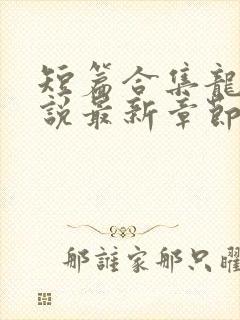 短篇合集龍
說最新章節
那誰家那只曜